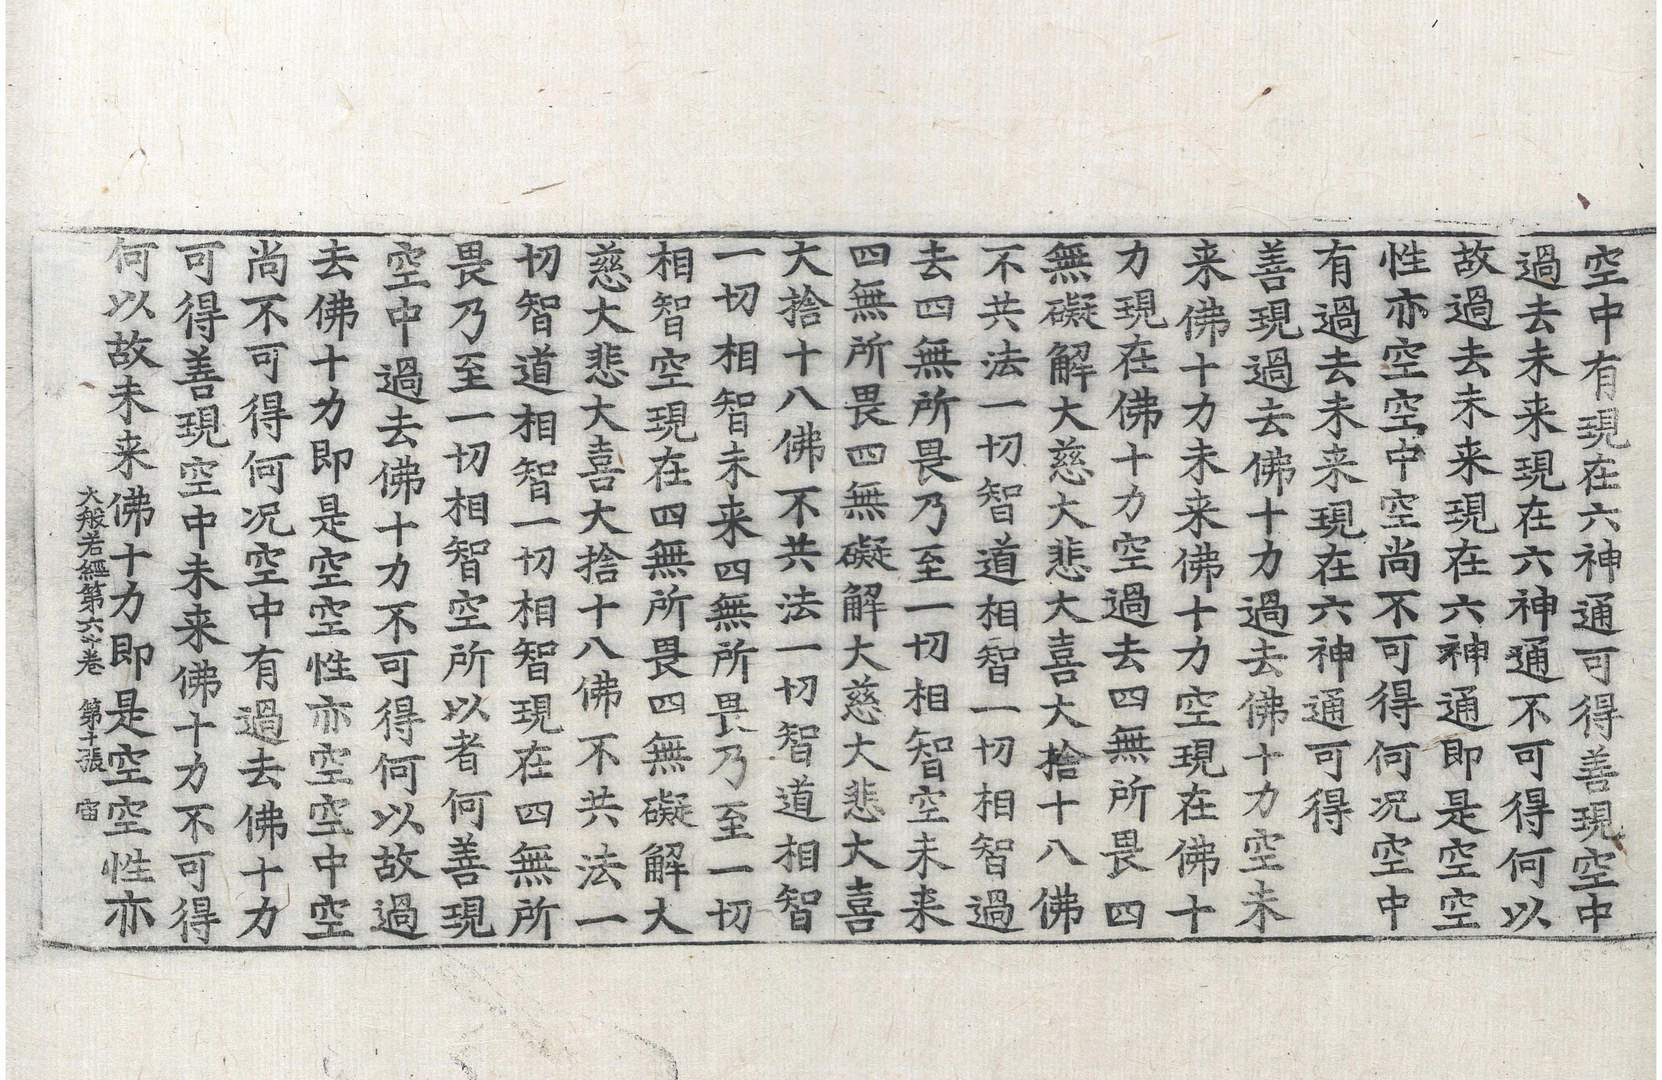 空中有現在六神通可得善現空中
過去未来現在六神通不可得何以
故過去未来現在六神通即是空空
性亦空空中空尚不可得何况空中
有過去未来現在六神通可得
善現過去佛十力過去佛十力空未
来佛十力未来佛十力空現在佛十
力現在佛十力空過去四無所畏四
無礙解大慈大悲大喜大捨十八佛
不共法一切智道相智一切相智過
去四無所畏乃至一切相智空未来
四無所畏四無礙解大慈大悲大喜
大捨十八佛不共法一切智道相智
一切相智未来四無所畏乃至一切
相智空現在四無所畏四無礙解大
慈大悲大喜大捨十八佛不共法一
切智道相智一切相智現在四無所
畏乃至一切相智空所以者何善現
空中過去佛十力不可得何以故過
去佛十力即是空空性亦空空中空
尚不可得何况空中有過去佛十力
可得善現空中未来佛十力不可得
何以故未来佛十力即是空空性亦
大般若經第六十卷 第十張 宙